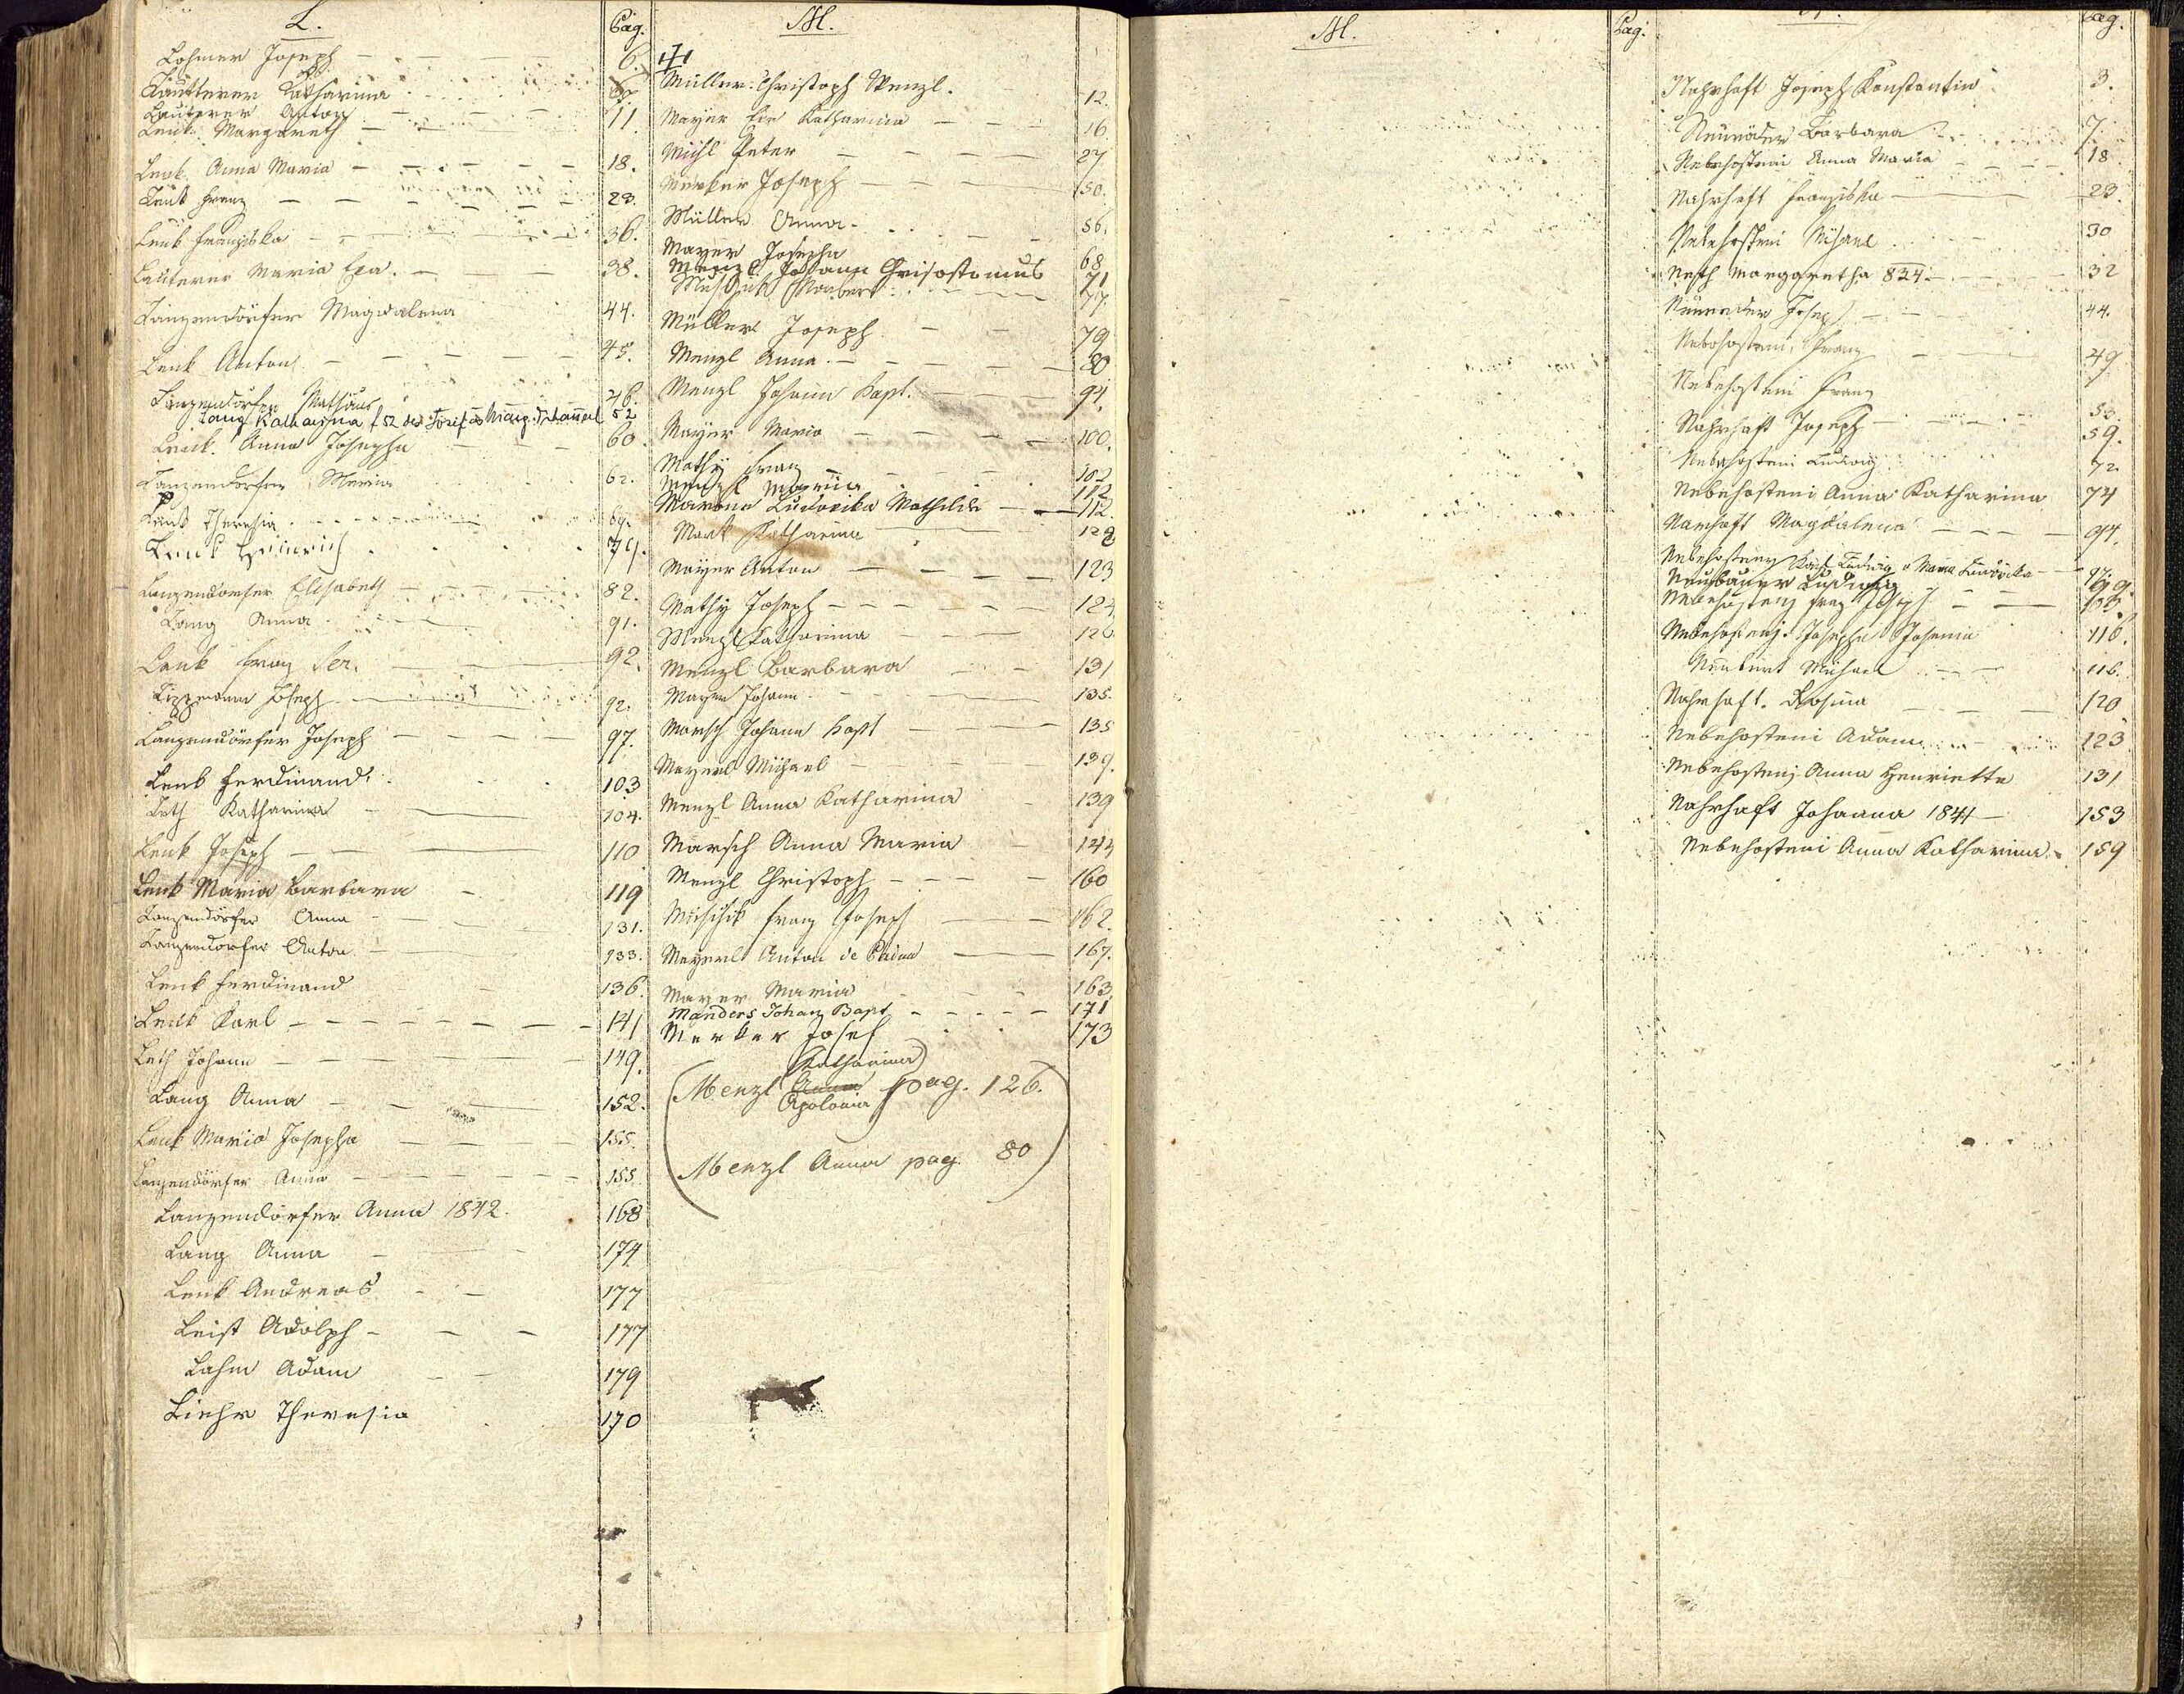 L.
Pag.
Lohmer Joseph 6.
Lautterer Katharina
Lauterer Anton
Lenk Margareth 11
Lenk Anna Maria 18.
Lenk Franz 23.
Lenk Franziska 36.
Lauterer Maria Eva. 38.
Langendörfer Magdalena 44.
Lenk Anton 45.
Langendörfer Mathäus 46.
Lang Katharina f 52 des Josif 52
Lenk Anna Josepha 60.
Langendörfer Maria 62.
Lenk Theresia
Lenk Heinrich 74.
Langendörfer Elisabeth 82.
Lang Anna 91.
Lenk Franz Ser. 92.
Lippmann Joseph 92.
Langendörfer Joseph 97.
Lenk Ferdinand 103
Leth Katharina 104.
Lenk Joseph 110
Lenk Maria Barbara 119
Langendörfer Anna 131.
Langendörfer Anton 133.
Lenk Ferdinand 136.
Lenk Karl 141
Leth Johann 149.
Lang Anna 152.
Lenk Maria Josepha 155.
Langendörfer Anna 155
Langendörfer Anna 1842. 168
Lang Anna 174
Lenk Andreas 177
Leist Adolph 177
Lahm Adam 179
Liehr Theresia 170
M.
Müller Christoph Wenzl. 12.
Mayer Eva Katharina 16.
Michl Peter 27
Merker Joseph 50.
Müller Anna 56.
Mayer Josepha 68
Menzl Johann Chrisostomus 71
Norbert 77.
Müller Joseph 79
Menzl Anna 80
Menzl Johann Bapt. 94.
Mayer Maria 100.
Mathy Franz 102
Menzl Maria 112
Ludovika Mathilde 112.
Katharina
Mayer Anton 123
Mathy Joseph 124
Menzl Katharina 126
Menzl Barbara 131
Mayer Johann 135.
Marsch Johann Bapt 135
Mayerl Michael 139.
Menzl Anna Katharina 139
Marsch Anna Maria 144
Menzl Christoph 160
Franz Joseph 162.
Mayerl Anton de Padua 167.
Mayer Maria 163
Manders Johan Bapt 171
Merker Josef 173
Katharina
(Menzl Anna pag. 126.
Apolonia
Menzl Anna pag. 80)
M.
Pag.
Pag.
Nahrhaft Joseph Konstantin 3.
Neuräder Barbara 7.
Nebehosteni Anna Maria 18
Nahrhaft Franziska 23.
Nebehosteni Michael 30
Neth Margaretha 834 32
Neuräder Joseph 44.
Nebohosteni Franz 49
Nebehosteni Franz 53.
Nahrhaft Joseph 59.
Nebehosteni Ludwig 72.
Nebehosteni Anna Katharina 74
Narhaft Magdalena 94.
Nebehosteny Ludwig Maria Ludovika 97.
Neubauer Ludwig 99.
Nebehosteny Franz Joseph
Nebehosteny Josepha 116.
Michael 116.
Nahrhaft. Rosina 120
Nebehosteni Adam 123
Nebehosteny Anna Henriette 131
Nahrhaft Johanna 1841 153
Nebehosteni Anna Katharina 159